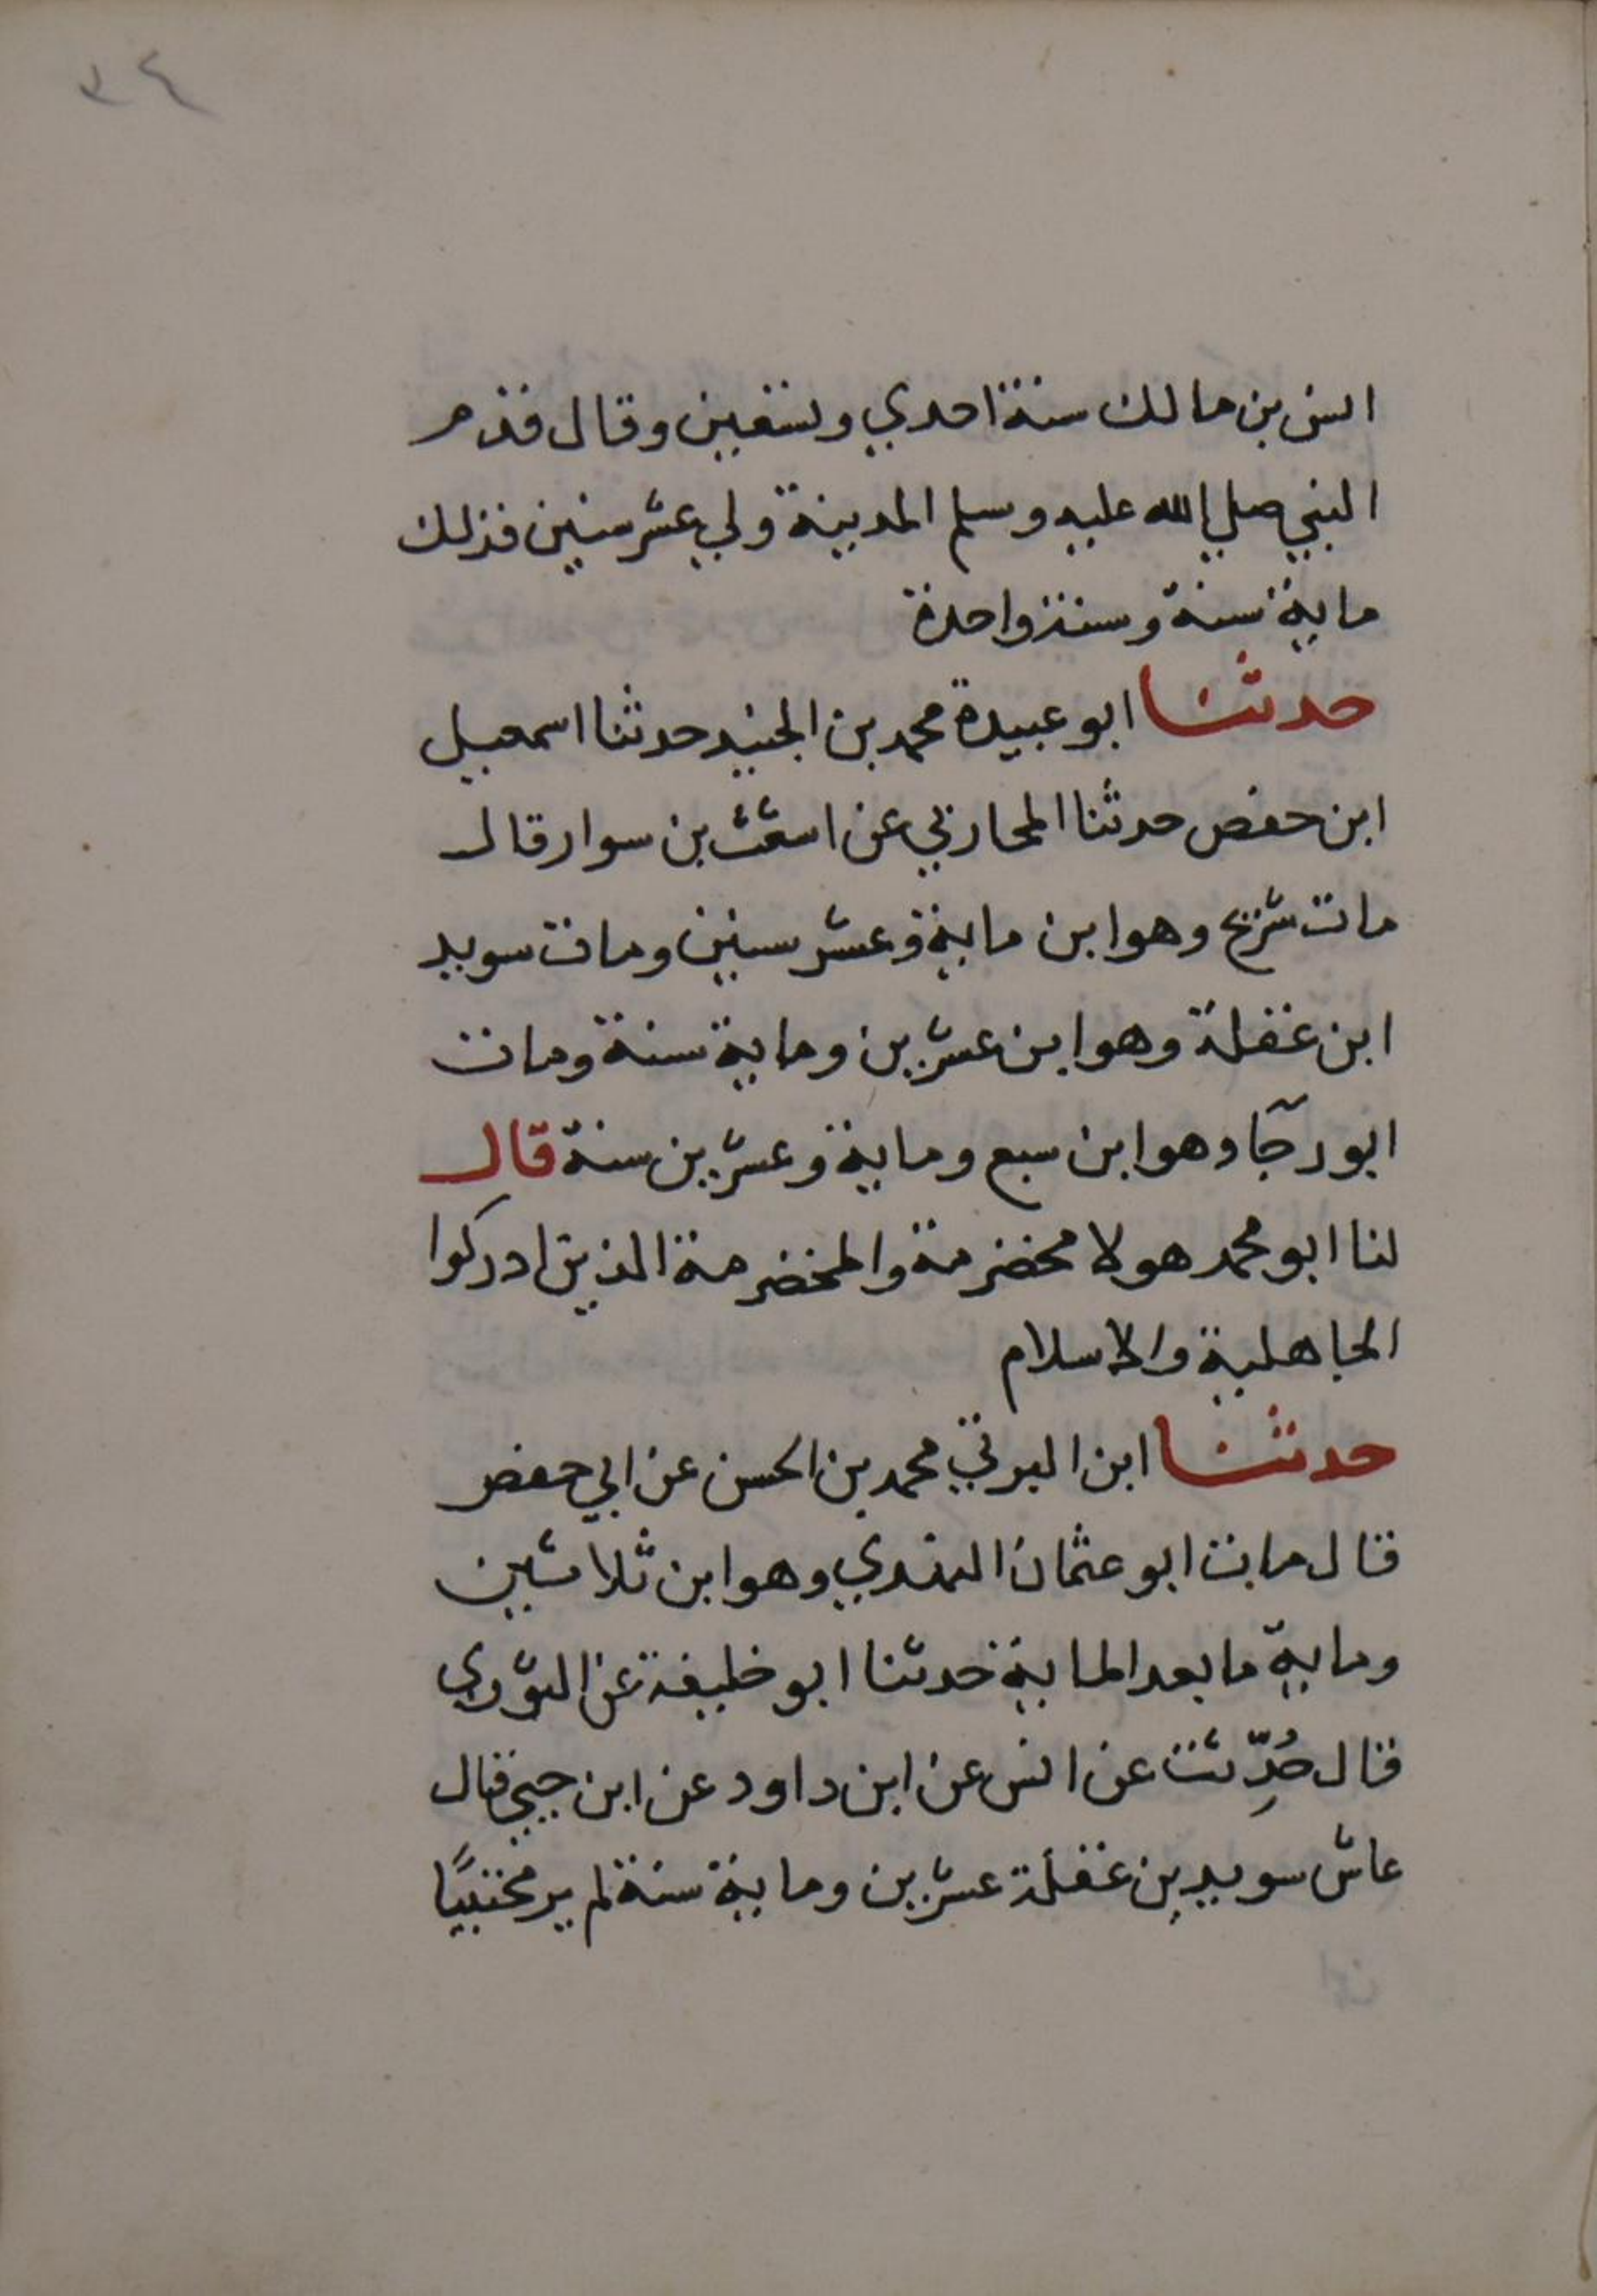 ٣٤
انس بن مالك سنة احدي وتسعين وقال قدم
النبي صلي الله عليه وسلم المدينة ولي عشر سنين فذلك
ماية سنة وسنة واحدة
حدثنا ابو عبيدة محمد بن الجنيد حدثنا اسمعيل
ابن حفص حدثنا المحاربي عن اشعث بن سوار قال
مات شريح وهو ابن ماية وعشر سنين ومات سويد
ابن غفلة وهو ابن عشرين وماية سنة ومات
ابو رجآ وهو ابن سبع وماية وعشرين سنة قال
لنا ابو محمد هولا مخضرمة والمخضرمة الذين ادركوا
الجاهلية والاسلام
حدثنا ابن البرتي محمد بن الحسن عن ابي حفص
قال مات ابو عثمان النهدي وهو ابن ثلاثين
وماية ما بعد الماية حدثنا ابو خليفة عن التوزي
قال حُدِّثت عن انس عن ابن داود عن ابن حيي قال
عاش سويد بن غفلة عشرين وماية سنة لم ير محتبيًا